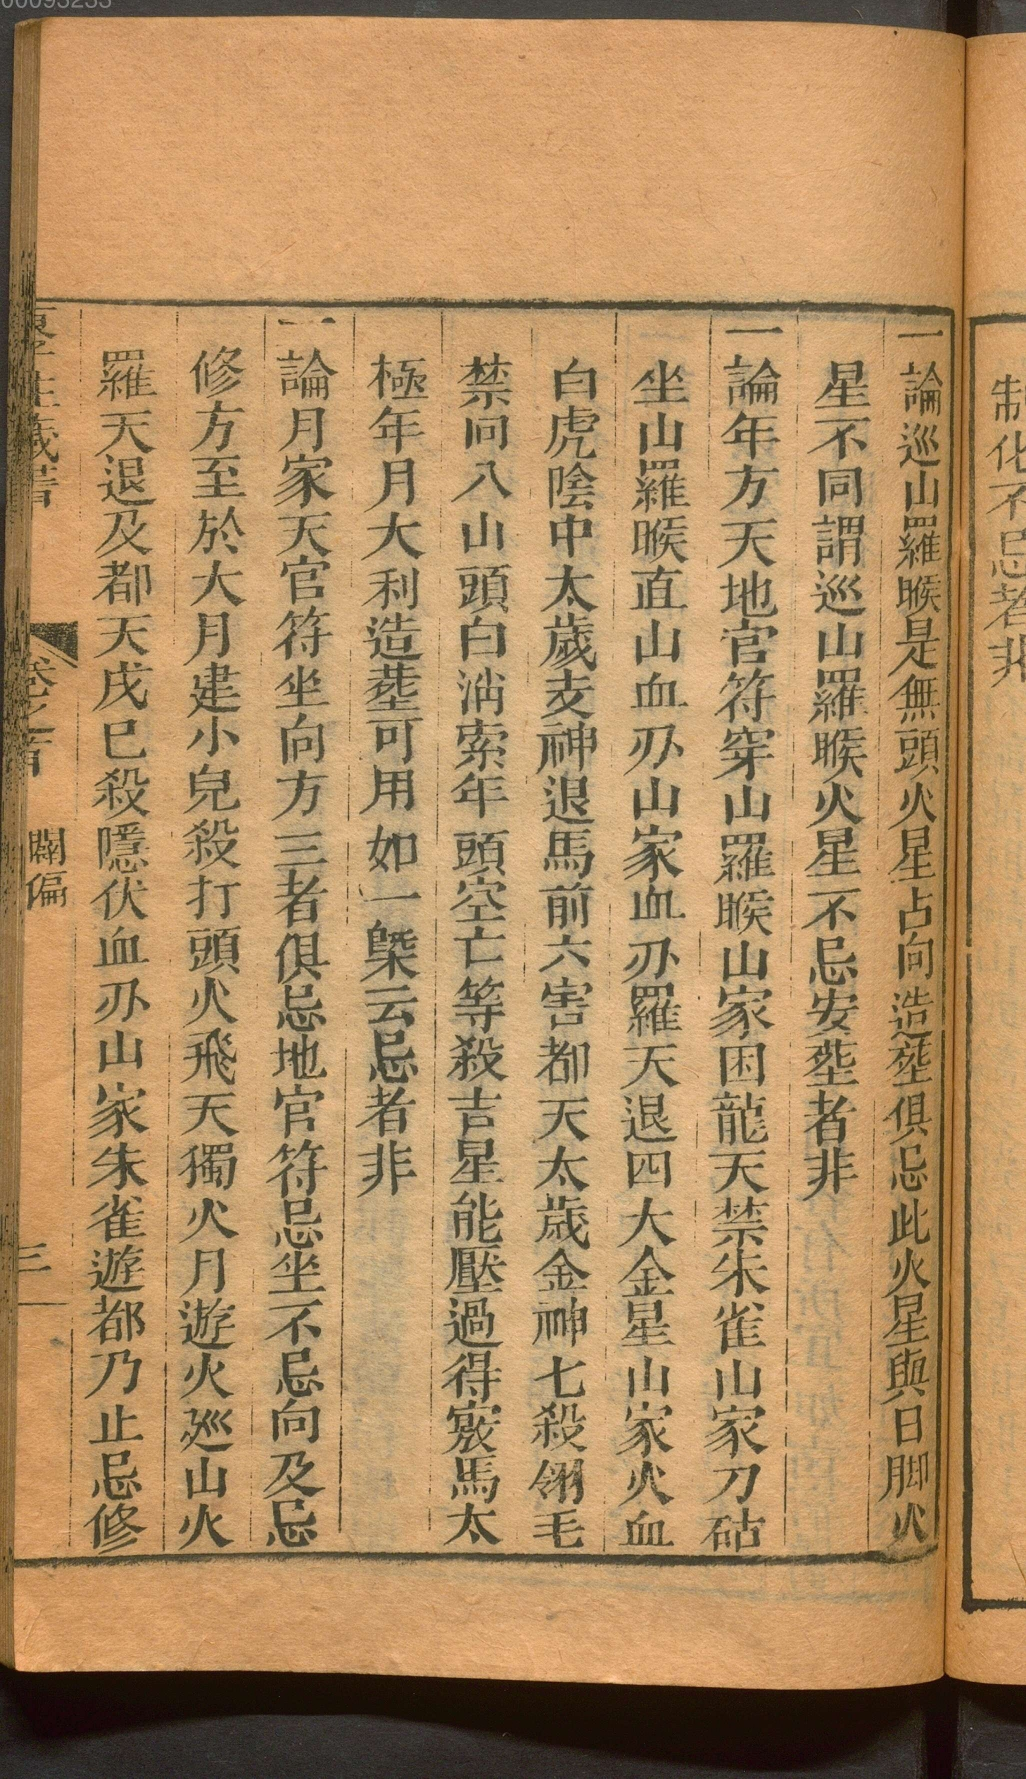 制化不忌者非
一論巡山羅睺是無頭火星占向造塟俱忌此火星與日脚火
星不同謂巡山羅睺火星不忌安塟者非
一論年方天地官符穿山羅睺山家困龍天禁朱雀山家刀砧
坐山羅睺直山血刃山家血刃羅天退四大金星山家火血
白虎陰中太歲支神退馬前六害都天太歲金神七殺翎毛
禁向八山頭白消索年頭空亡等殺吉星能壓過得竅馬太
極年月大利造塟可用如一槩云忌者非
一論月家天官符坐向方三者俱忌地官符忌坐不忌向及忌
修方至於大月建小兒殺打頭火飛天獨火月遊火巡山火
羅天退及都天戊巳殺隱伏血刃山家朱雀遊都乃止忌修
卷之首 闢偏 三
00093253